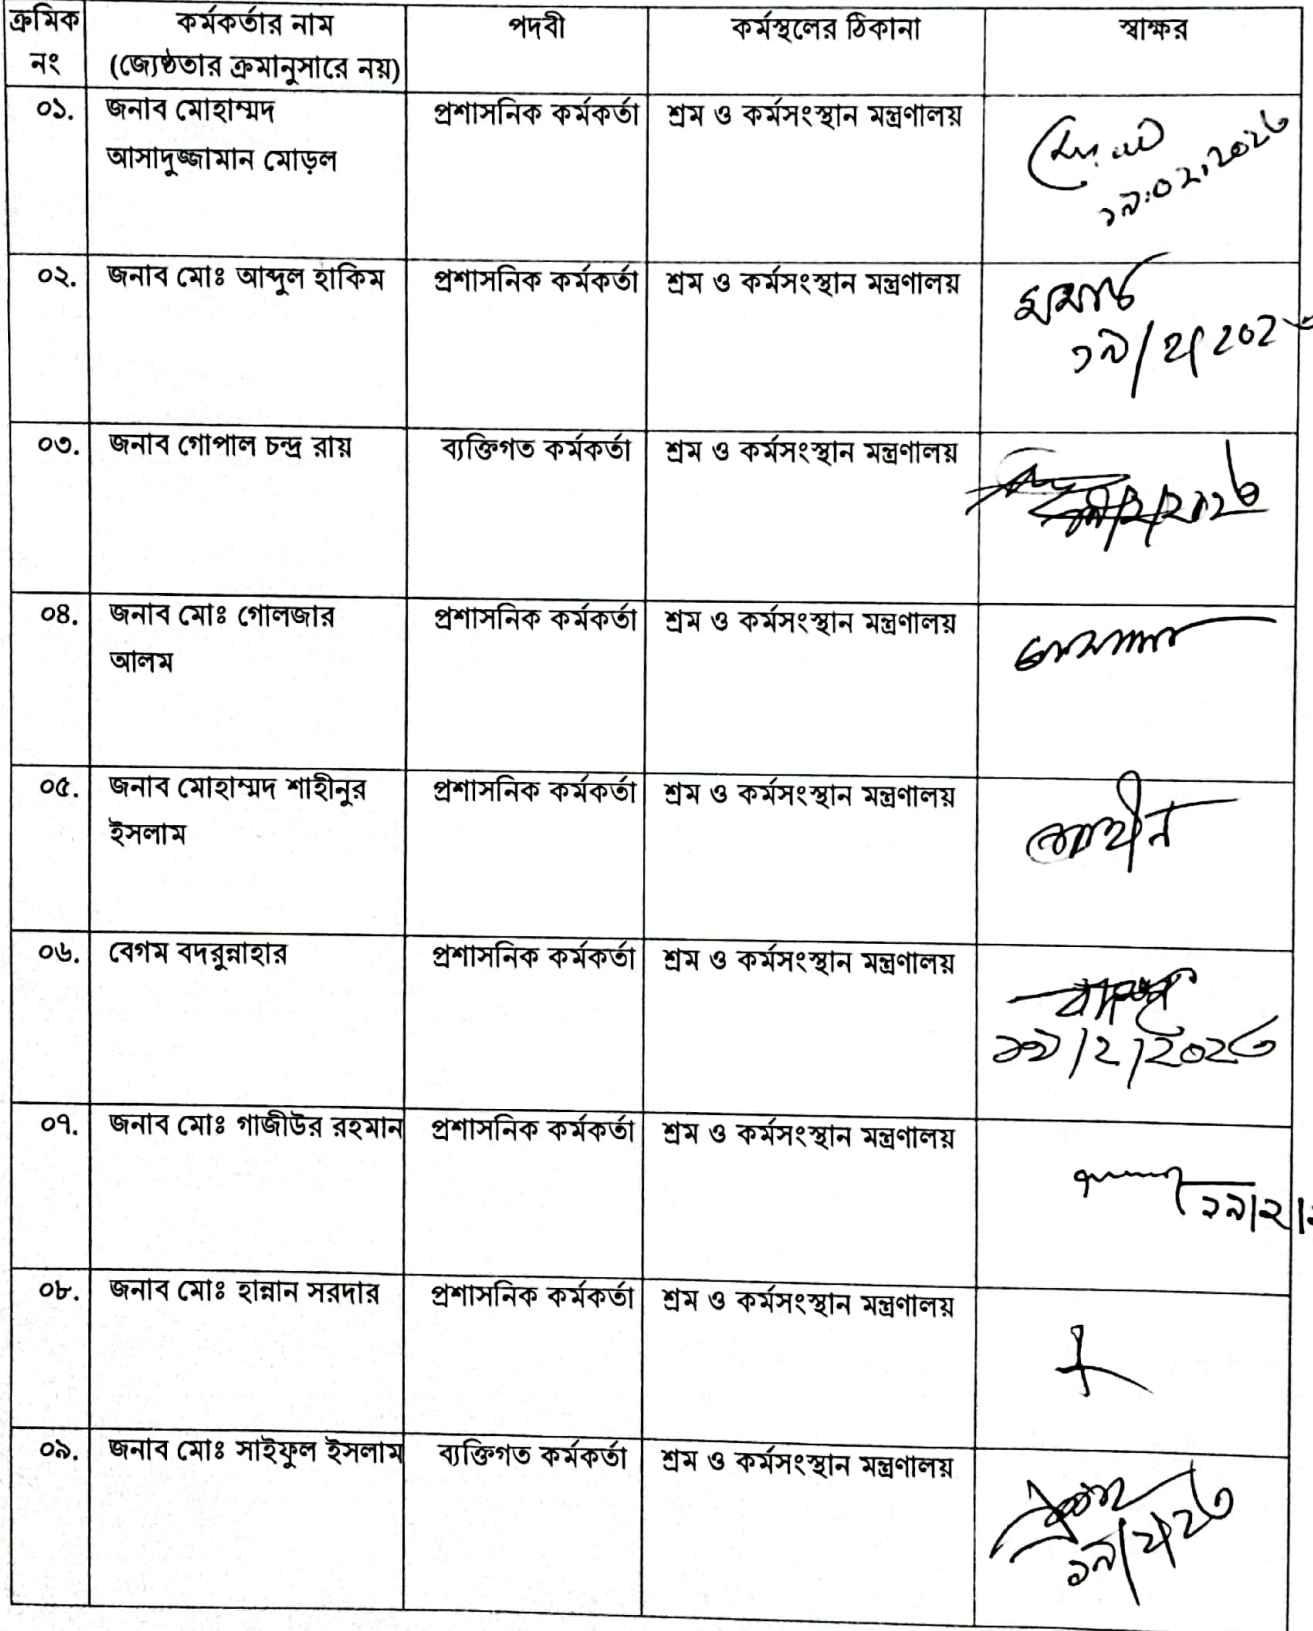 ক্রমিক নং কর্মকর্তার নাম (জ্যেষ্ঠতার ক্রমানুসারে নয়) পদবী কর্মস্থলের ঠিকানা স্বাক্ষর
০১. জনাব মোহাম্মদ প্রশাসনিক কর্মকর্তা শ্রম ও কর্মসংস্থান মন্ত্রণালয়
আসাদুজ্জামান মোড়ল
১৯.০২.২০২৬
০২. জনাব মোঃ আব্দুল হাকিম প্রশাসনিক কর্মকর্তা শ্রম ও কর্মসংস্থান মন্ত্রণালয়
০৩. জনাব গোপাল চন্দ্র রায় ব্যক্তিগত কর্মকর্তা শ্রম ও কর্মসংস্থান মন্ত্রণালয়
০৪. জনাব মোঃ গোলজার প্রশাসনিক কর্মকর্তা শ্রম ও কর্মসংস্থান মন্ত্রণালয়
আলম
০৫. জনাব মোহাম্মদ শাহীনুর প্রশাসনিক কর্মকর্তা শ্রম ও কর্মসংস্থান মন্ত্রণালয়
ইসলাম
০৬. বেগম বদরুন্নাহার প্রশাসনিক কর্মকর্তা শ্রম ও কর্মসংস্থান মন্ত্রণালয়
১৯/২/২০২৬
০৭. জনাব মোঃ গাজীউর রহমান প্রশাসনিক কর্মকর্তা শ্রম ও কর্মসংস্থান মন্ত্রণালয়
১৯/২/
০৮. জনাব মোঃ হান্নান সরদার প্রশাসনিক কর্মকর্তা শ্রম ও কর্মসংস্থান মন্ত্রণালয়
০৯. জনাব মোঃ সাইফুল ইসলাম ব্যক্তিগত কর্মকর্তা শ্রম ও কর্মসংস্থান মন্ত্রণালয়
১৯/২/২৬